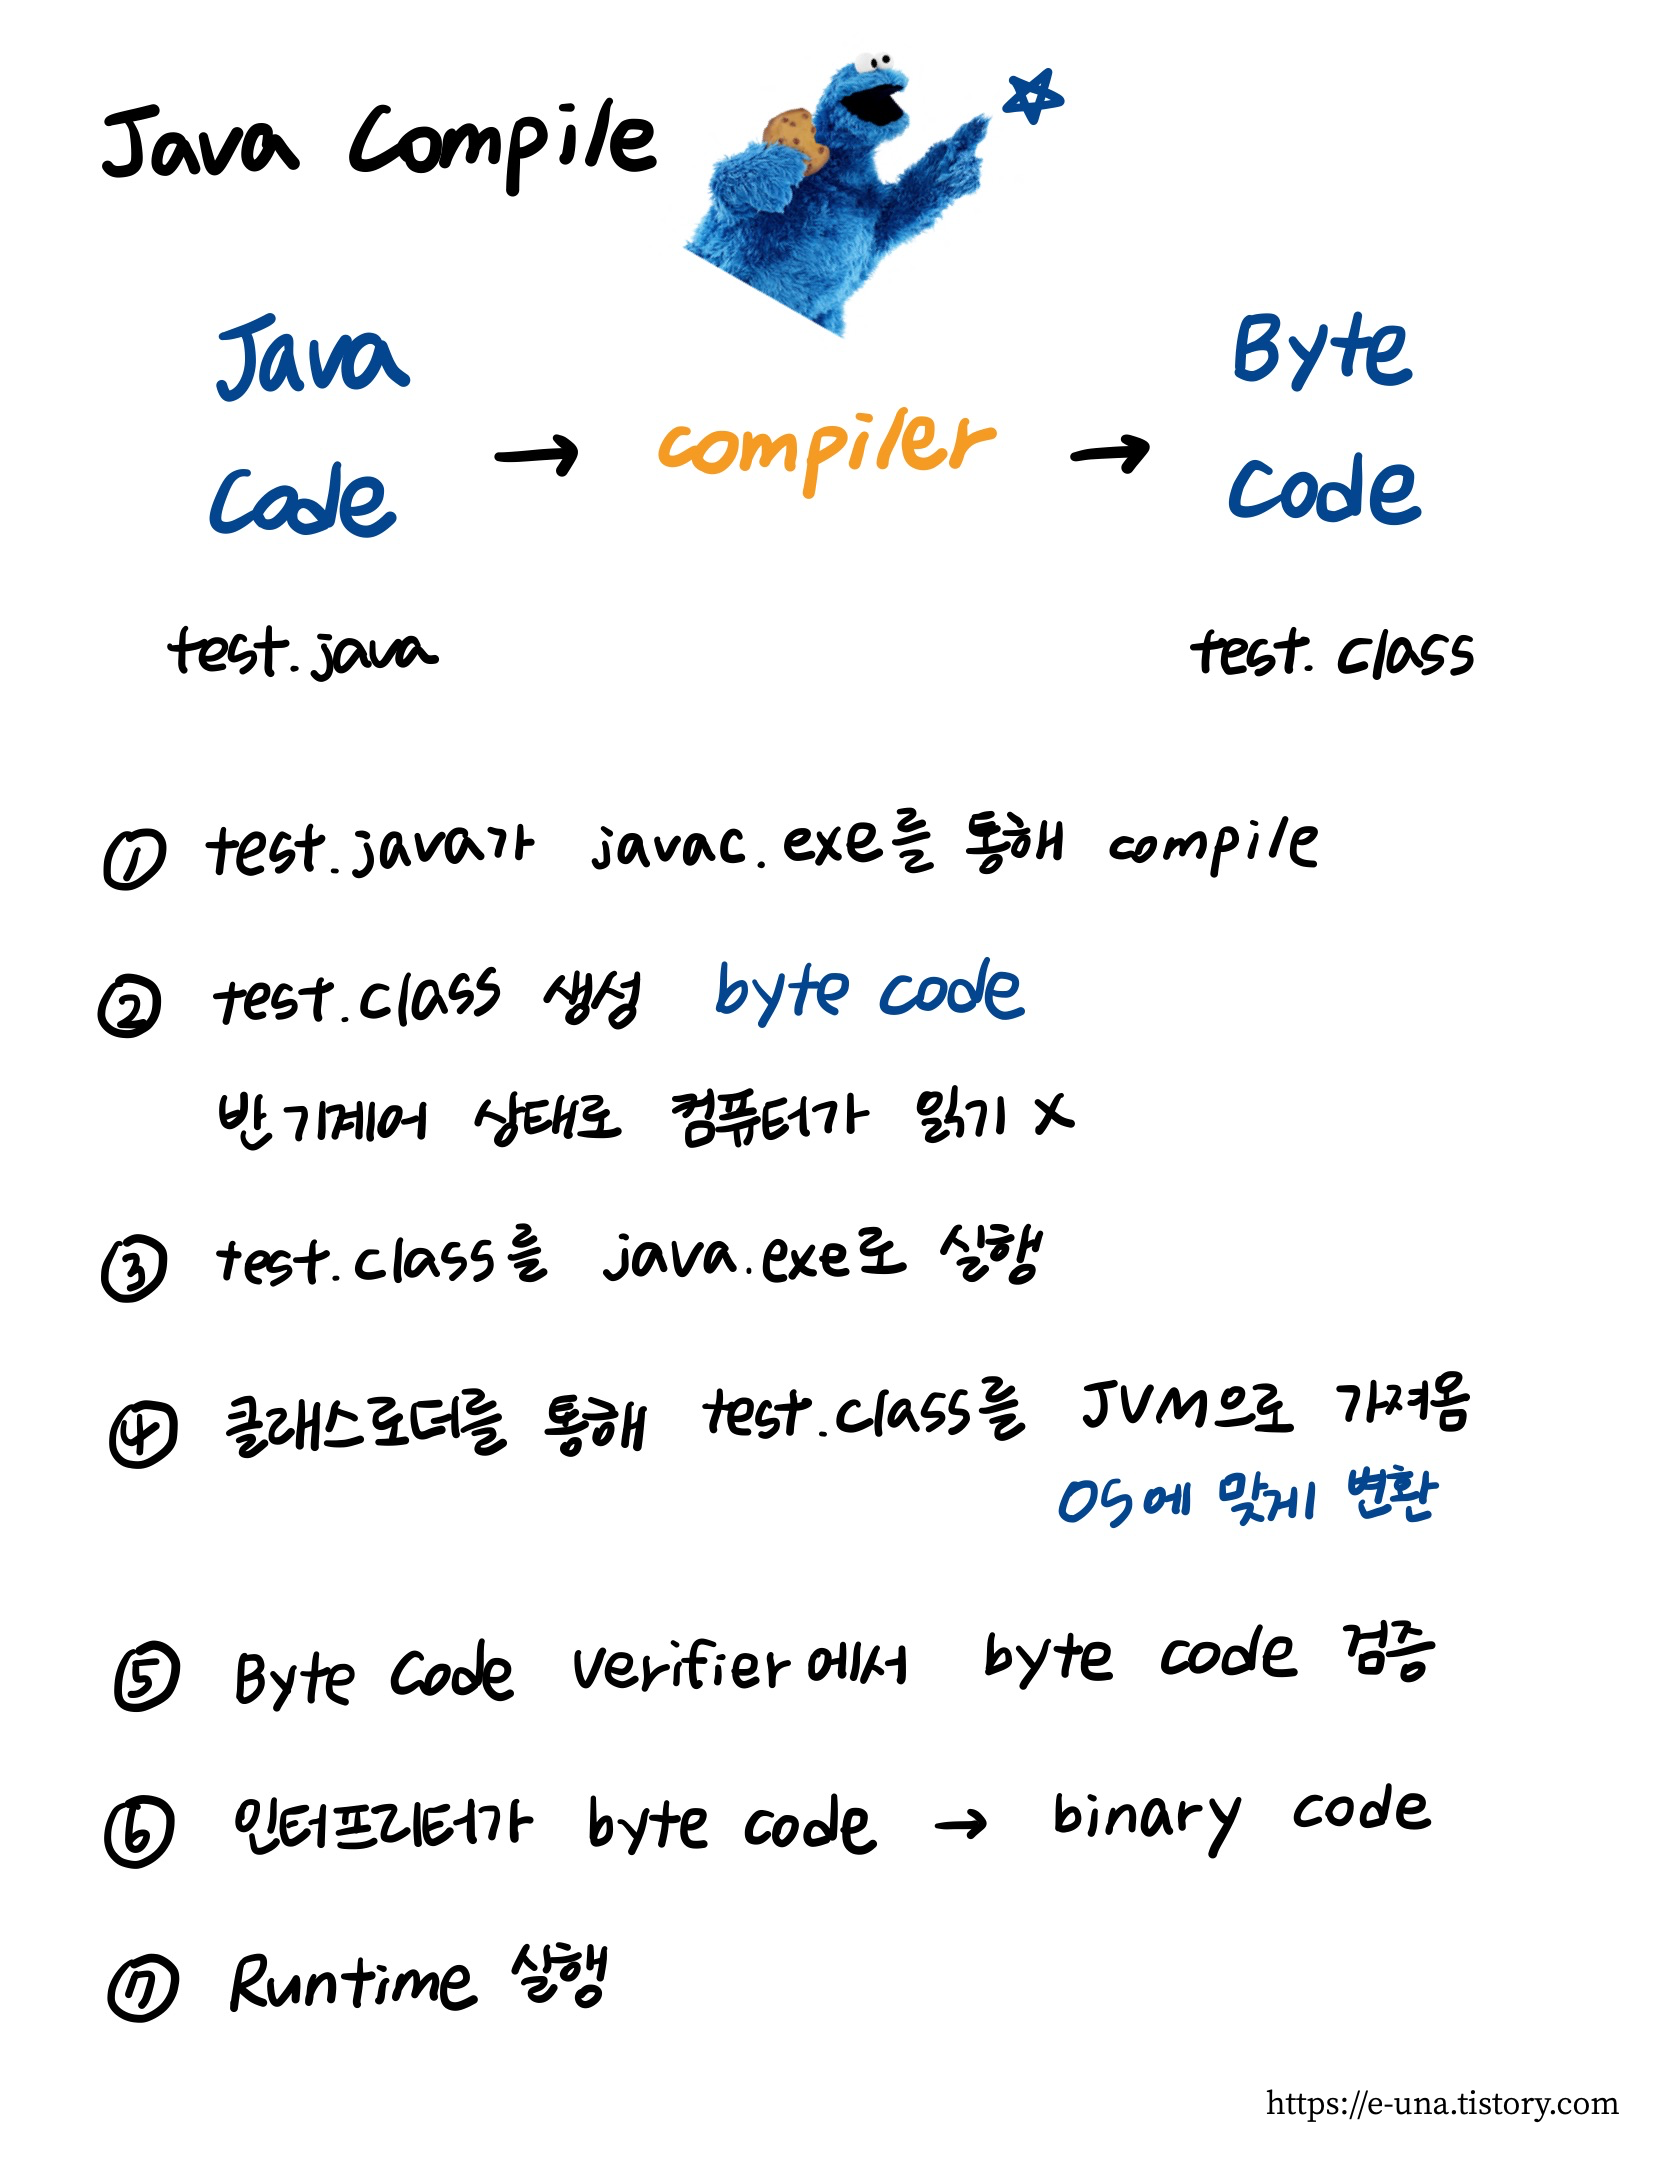 Java Compile
Java Code → compiler → Byte Code
test.java test.class
① test.java가 javac.exe를 통해 compile
② test.class 생성 byte code
반 기계어 상태로 컴퓨터가 읽기 X
③ test.class를 java.exe로 실행
④ 클래스로더를 통해 test.class를 JVM으로 가져옴
OS에 맞게 변환
⑤ Byte Code verifier에서 byte code 검증
⑥ 인터프리터가 byte code → binary code
⑦ Runtime 실행
https://e-una.tistory.com